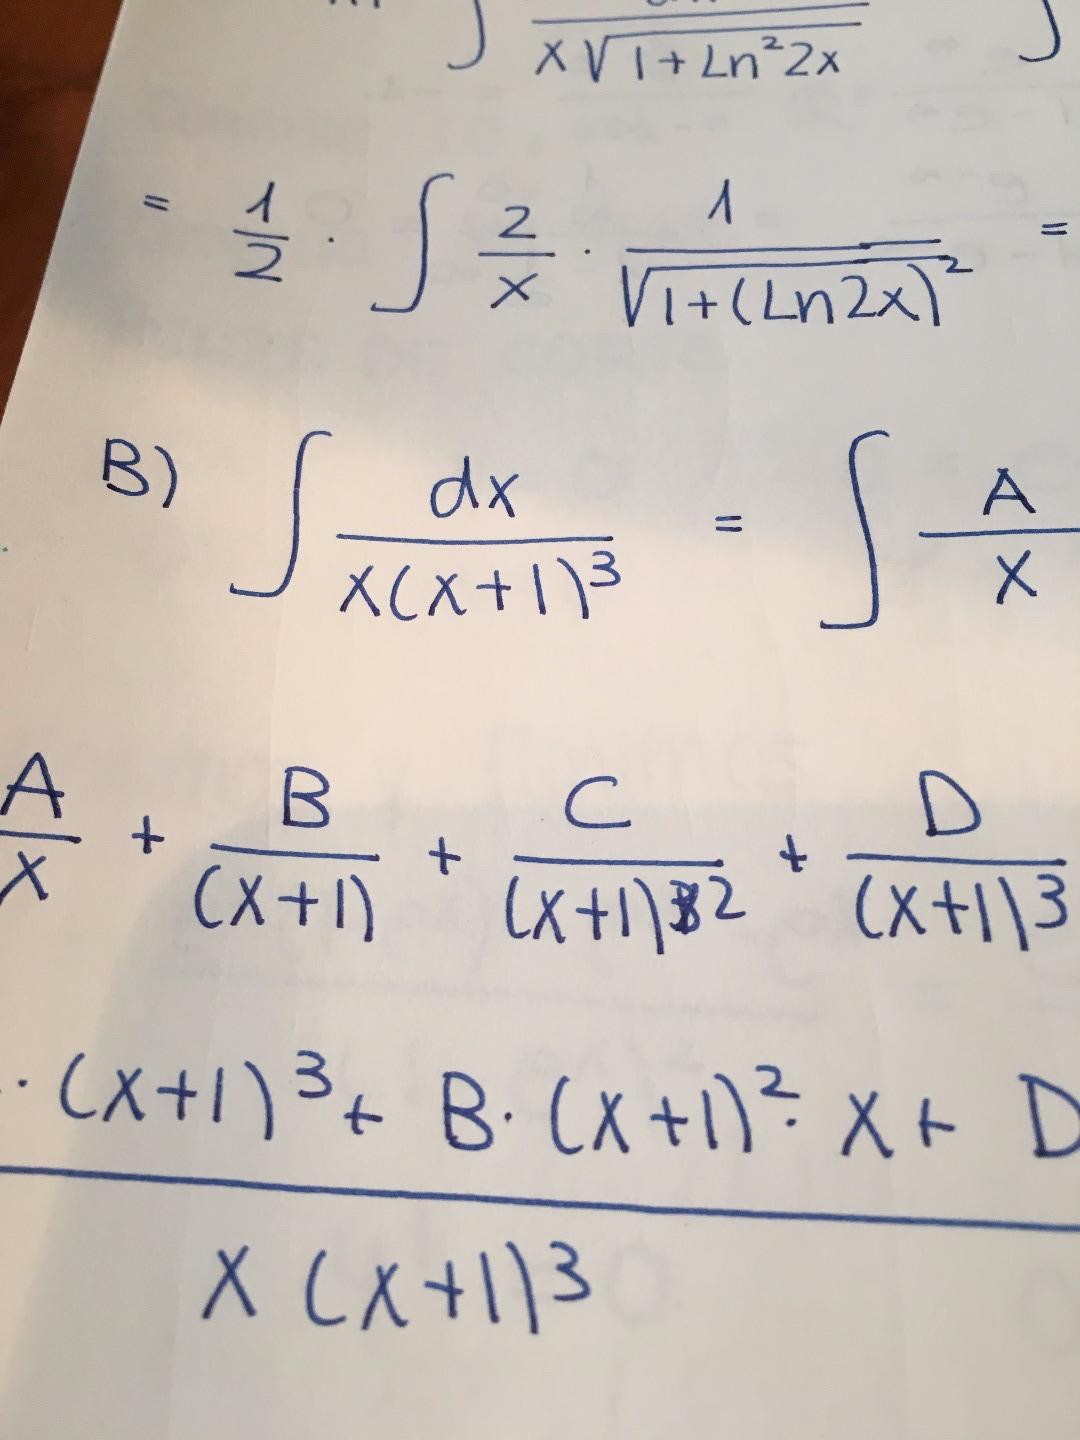 ∫ x√1+Ln²2x ∫
= 1/2 · ∫ 2/x · 1/√1+(Ln2x)² =
B) ∫ dx/x(x+1)³ = ∫ A/x
A/x + B/(x+1) + C/(x+1)2 + D/(x+1)3
· (x+1)³ + B·(x+1)²· x + D
x (x+1)3